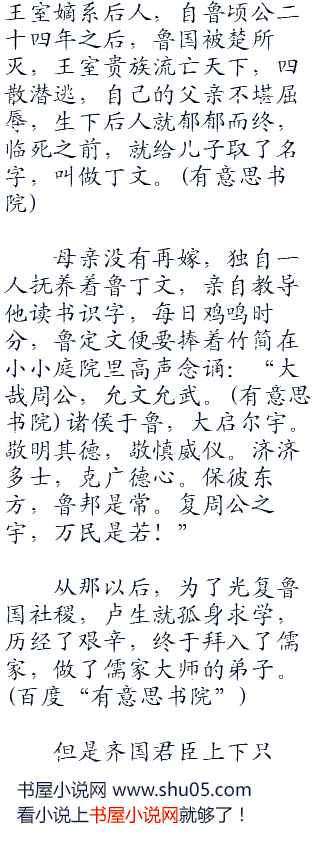 王室嫡系后人，自鲁顷公二
十四年之后，鲁国被楚所
灭，王室贵族流亡天下，四
散潜逃，自己的父亲不堪屈
辱，生下后人就郁郁而终，
临死之前，就给儿子取了名
字，叫做丁文。(有意思书
院)
母亲没有再嫁，独自一
人抚养着鲁丁文，亲自教导
他读书识字，每日鸡鸣时
分，鲁定文便要捧着竹简在
小小庭院里高声念诵：“大
哉周公，允文允武。(有意思
书院)诸侯于鲁，大启尔宇。
敬明其德，敬慎威仪。济济
多士，克广德心。保彼东
方，鲁邦是常。复周公之
宇，万民是若！”
从那以后，为了光复鲁
国社稷，卢生就孤身求学，
历经了艰辛，终于拜入了儒
家，做了儒家大师的弟子。
(百度“有意思书院”)
但是齐国君臣上下只
书屋小说网 www.shu05.com
看小说上书屋小说网就够了！